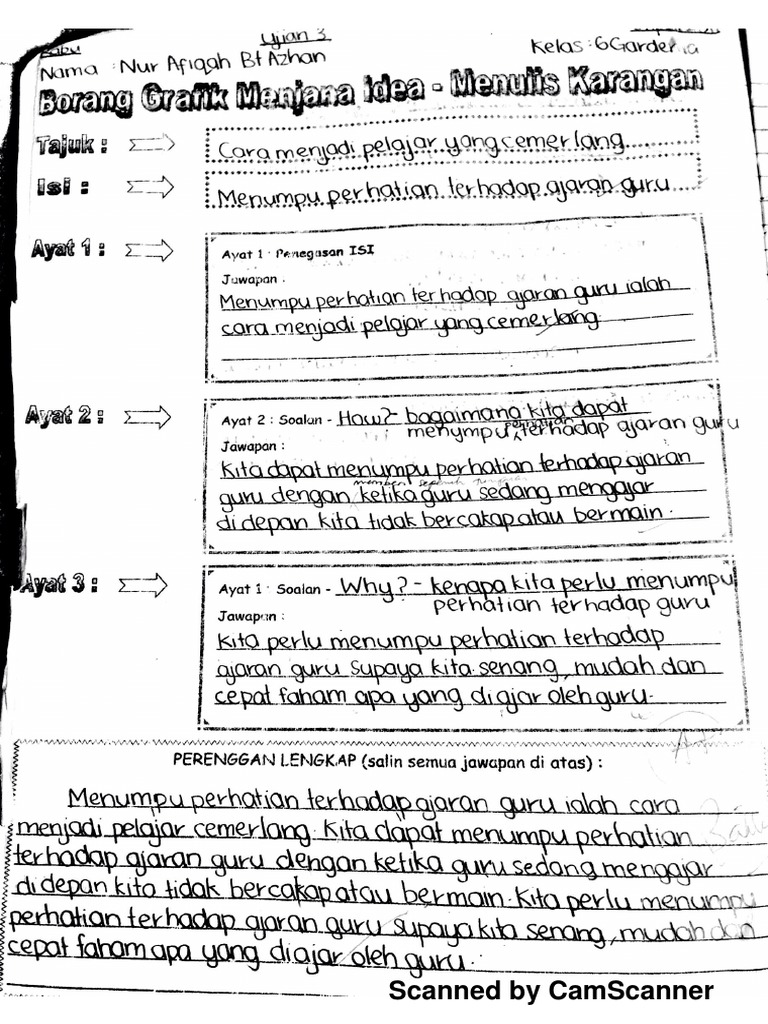 Ujian 3
Nama : Nur Afiqah Bt Azhan
Kelas : 6 Gardenia
Borang Grafik Menjana Idea - Menulis Karangan
Tajuk :
Cara menjadi pelajar yang cemerlang
Isi :
Menumpu perhatian terhadap ajaran guru
Ayat 1 :
Ayat 1 : Penegasan ISI
Jawapan :
Menumpu perhatian terhadap ajaran guru ialah
cara menjadi pelajar yang cemerlang.
Ayat 2 :
Ayat 2 : Soalan - How? - bagaimana kita dapat
menympu terhadap ajaran guru
Jawapan :
Kita dapat menumpu perhatian terhadap ajaran
guru dengan ketika guru sedang mengajar
di depan kita tidak bercakap atau bermain.
Ayat 3 :
Ayat 1 : Soalan - Why? - kenapa kita perlu menumpu
perhatian terhadap guru
Jawapan :
Kita perlu menumpu perhatian terhadap
ajaran guru supaya kita senang, mudah dan
cepat faham apa yang diajar oleh guru.
PERENGGAN LENGKAP (salin semua jawapan di atas) :
Menumpu perhatian terhadap ajaran guru ialah cara
menjadi pelajar cemerlang. Kita dapat menumpu perhatian
terhadap ajaran guru dengan ketika guru sedang mengajar
di depan kita tidak bercakap atau bermain. Kita perlu menumpu
perhatian terhadap ajaran guru supaya kita senang, mudah dan
cepat faham apa yang diajar oleh guru.
Scanned by CamScanner